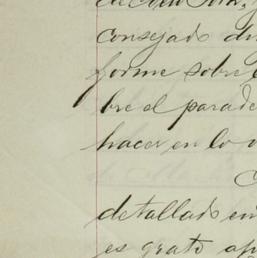 consejado
forme sobre
bre el parade
hacer en lo
detallado en
es grato